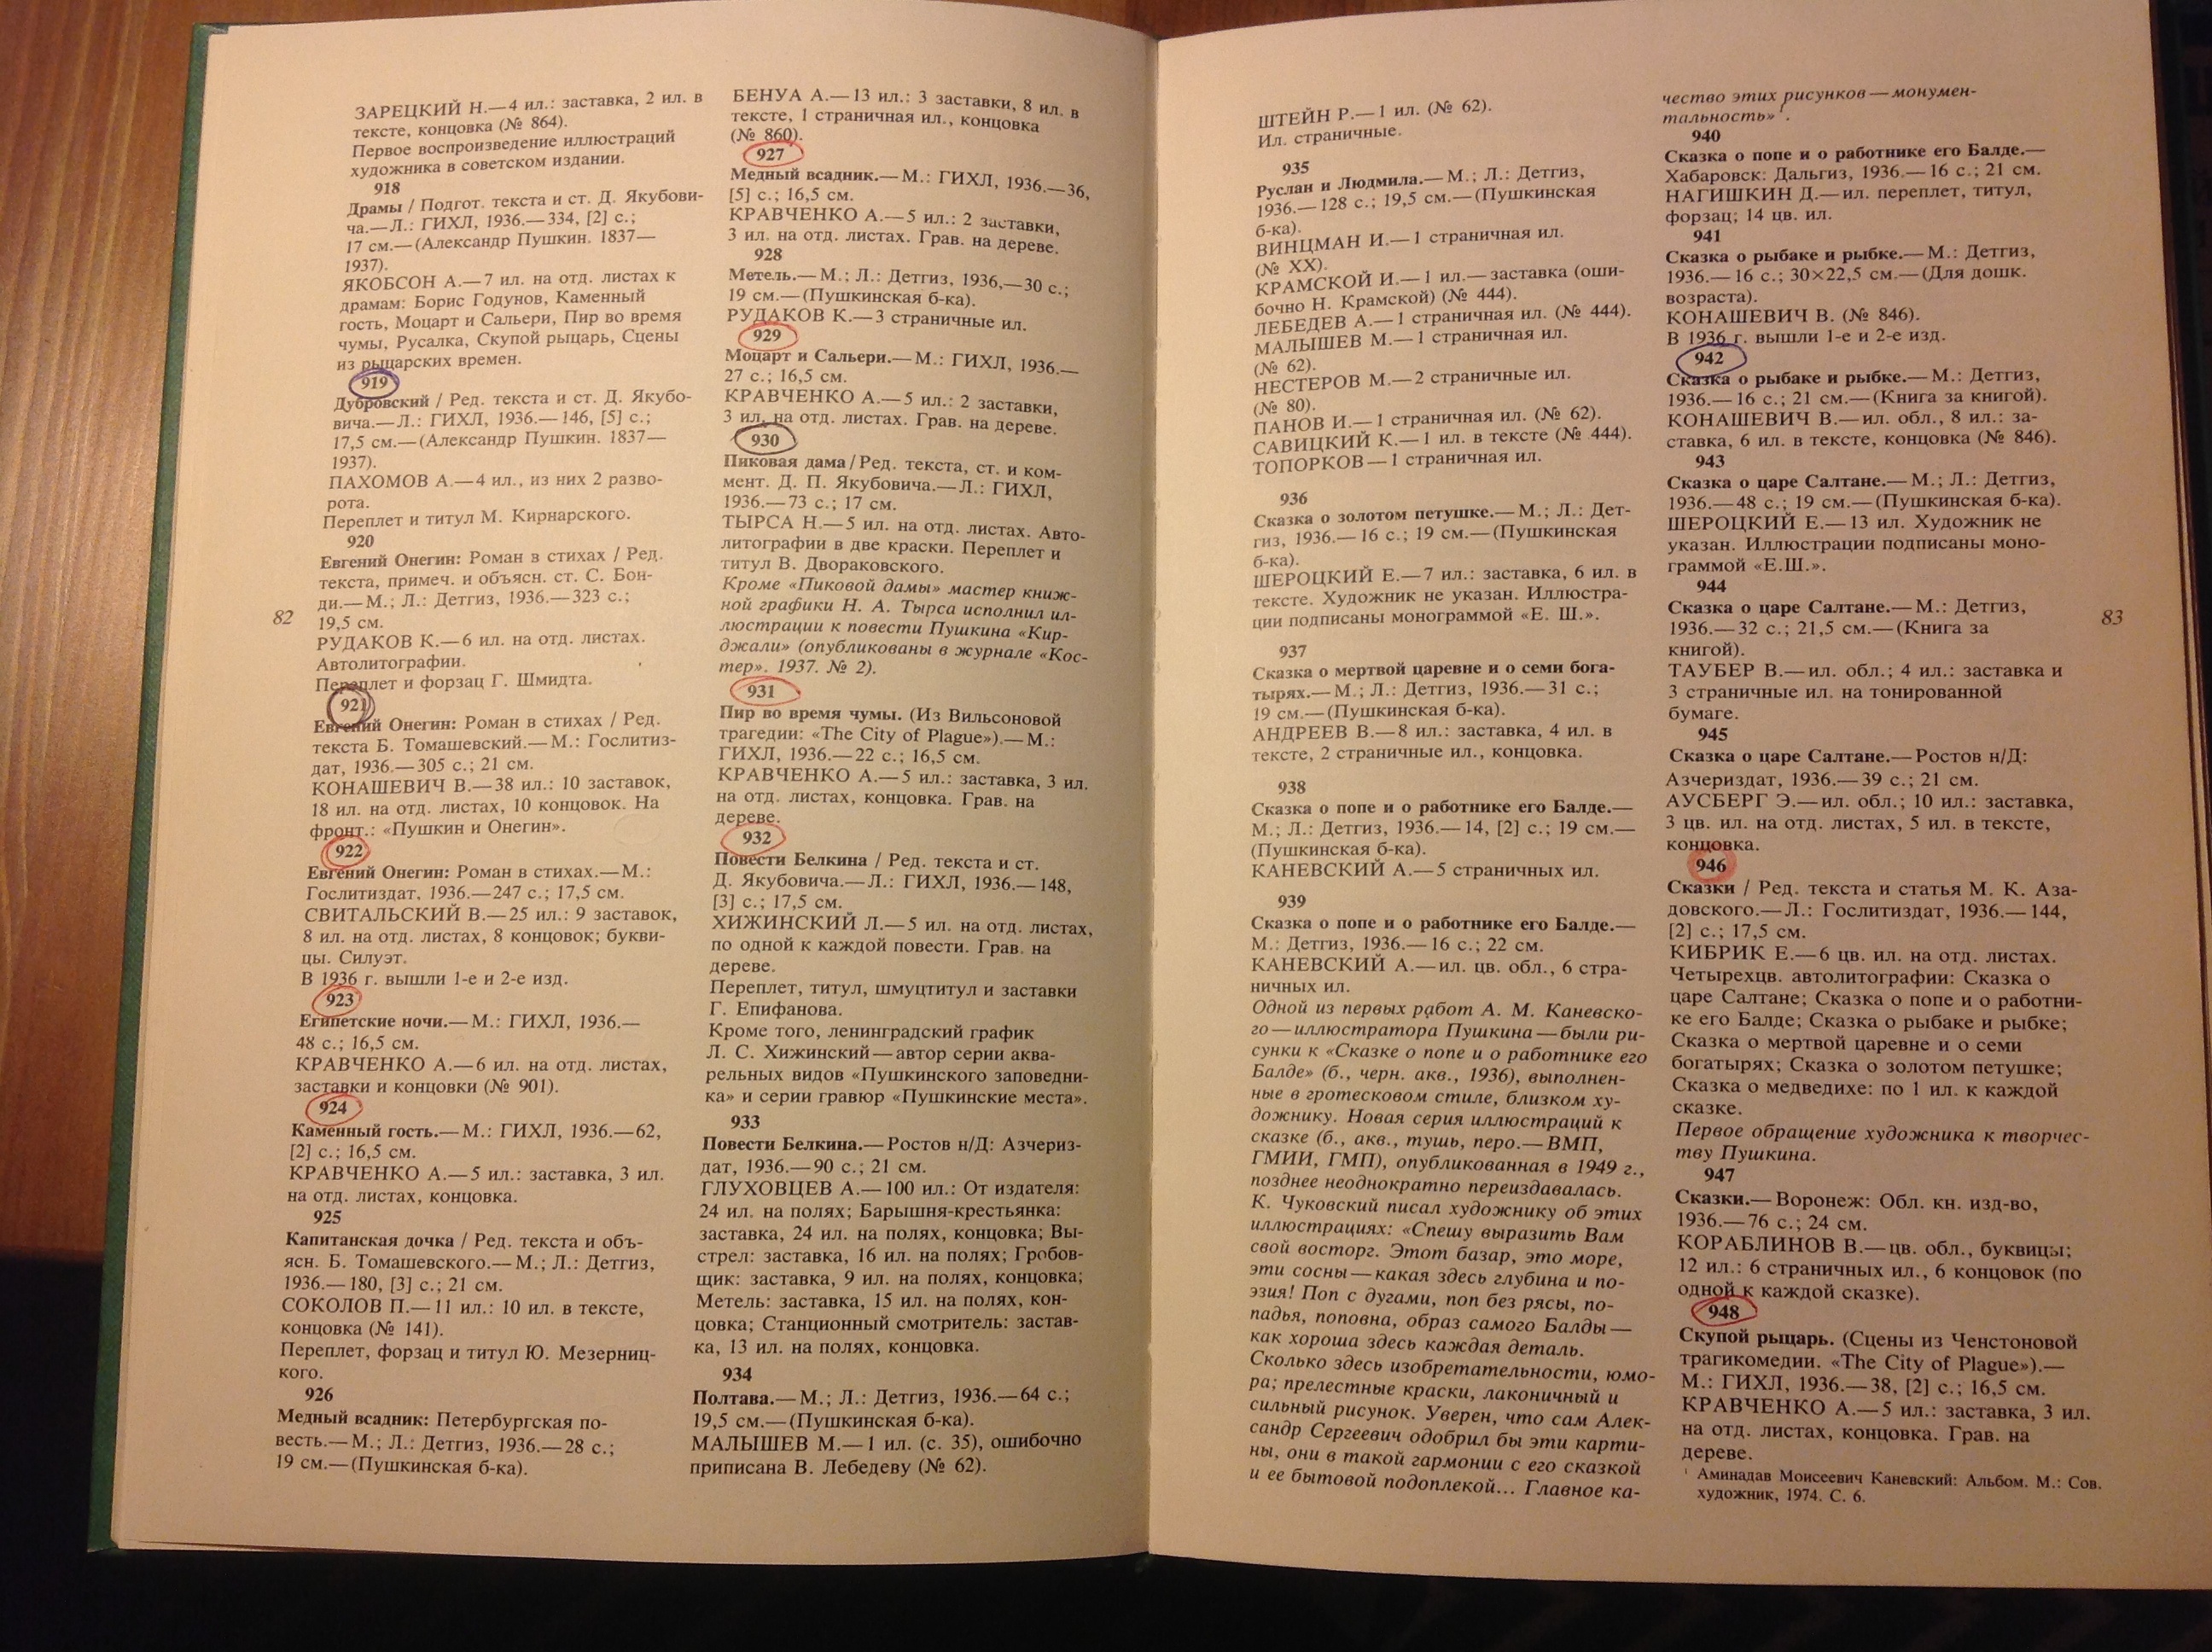 ЗАРЕЦКИЙ Н.—4 ил.: заставка, 2 ил. в
тексте, концовка (№ 864).
Первое воспроизведение иллюстраций
художника в советском издании.
918
Драмы / Подгот. текста и ст. Д. Якубови-
ча.—Л.: ГИХЛ, 1936.—334, [2] с.;
17 см.—(Александр Пушкин. 1837—
1937).
ЯКОБСОН А.—7 ил. на отд. листах к
драмам: Борис Годунов, Каменный
гость, Моцарт и Сальери, Пир во время
чумы, Русалка, Скупой рыцарь, Сцены
из рыцарских времен.
919
Дубровский / Ред. текста и ст. Д. Якубо-
вича.—Л.: ГИХЛ, 1936.—146, [5] с.;
17,5 см.—(Александр Пушкин. 1837—
1937).
ПАХОМОВ А.—4 ил., из них 2 разво-
рота.
Переплет и титул М. Кирнарского.
920
Евгений Онегин: Роман в стихах / Ред.
текста, примеч. и объясн. ст. С. Бон-
ди.—М.; Л.: Детгиз, 1936.—323 с.;
19,5 см.
РУДАКОВ К.—6 ил. на отд. листах.
Автолитографии.
Переплет и форзац Г. Шмидта.
921
Евгений Онегин: Роман в стихах / Ред.
текста Б. Томашевский.—М.: Гослитиз-
дат, 1936.—305 с.; 21 см.
КОНАШЕВИЧ В.—38 ил.: 10 заставок,
18 ил. на отд. листах, 10 концовок. На
фронт.: «Пушкин и Онегин».
922
Евгений Онегин: Роман в стихах.—М.:
Гослитиздат, 1936.—247 с.; 17,5 см.
СВИТАЛЬСКИЙ В.—25 ил.: 9 заставок,
8 ил. на отд. листах, 8 концовок; букви-
цы. Силуэт.
В 1936 г. вышли 1-е и 2-е изд.
923
Египетские ночи.—М.: ГИХЛ, 1936.—
48 с.; 16,5 см.
КРАВЧЕНКО А.—6 ил. на отд. листах,
заставки и концовки (№ 901).
924
Каменный гость.—М.: ГИХЛ, 1936.—62,
[2] с.; 16,5 см.
КРАВЧЕНКО А.—5 ил.: заставка, 3 ил.
на отд. листах, концовка.
925
Капитанская дочка / Ред. текста и объ-
ясн. Б. Томашевского.—М.; Л.: Детгиз,
1936.—180, [3] с.; 21 см.
СОКОЛОВ П.—11 ил.: 10 ил. в тексте,
концовка (№ 141).
Переплет, форзац и титул Ю. Мезерниц-
кого.
926
Медный всадник: Петербургская по-
весть.—М.; Л.: Детгиз, 1936.—28 с.;
19 см.—(Пушкинская б-ка).
82
БЕНУА А.—13 ил.: 3 заставки, 8 ил. в
тексте, 1 страничная ил., концовка
(№ 860).
927
Медный всадник.—М.: ГИХЛ, 1936.—36,
[5] с.; 16,5 см.
КРАВЧЕНКО А.—5 ил.: 2 заставки,
3 ил. на отд. листах. Грав. на дереве.
928
Метель.—М.; Л.: Детгиз, 1936,—30 с.;
19 см.—(Пушкинская б-ка).
РУДАКОВ К.—3 страничные ил.
929
Моцарт и Сальери.—М.: ГИХЛ, 1936.—
27 с.; 16,5 см.
КРАВЧЕНКО А.—5 ил.: 2 заставки,
3 ил. на отд. листах. Грав. на дереве.
930
Пиковая дама / Ред. текста, ст. и ком-
мент. Д. П. Якубовича.—Л.: ГИХЛ,
1936.—73 с.; 17 см.
ТЫРСА Н.—5 ил. на отд. листах. Авто-
литографии в две краски. Переплет и
титул В. Двораковского.
Кроме «Пиковой дамы» мастер книж-
ной графики Н. А. Тырса исполнил ил-
люстрации к повести Пушкина «Кир-
джали» (опубликованы в журнале «Кос-
тер». 1937. № 2).
931
Пир во время чумы. (Из Вильсоновой
трагедии: «The City of Plague»).—М.:
ГИХЛ, 1936.—22 с.; 16,5 см.
КРАВЧЕНКО А.—5 ил.: заставка, 3 ил.
на отд. листах, концовка. Грав. на
дереве.
932
Повести Белкина / Ред. текста и ст.
Д. Якубовича.—Л.: ГИХЛ, 1936.—148,
[3] с.; 17,5 см.
ХИЖИНСКИЙ Л.—5 ил. на отд. листах,
по одной к каждой повести. Грав. на
дереве.
Переплет, титул, шмуцтитул и заставки
Г. Епифанова.
Кроме того, ленинградский график
Л. С. Хижинский—автор серии аква-
рельных видов «Пушкинского заповедни-
ка» и серии гравюр «Пушкинские места».
933
Повести Белкина.—Ростов н/Д: Азчериз-
дат, 1936.—90 с.; 21 см.
ГЛУХОВЦЕВ А.—100 ил.: От издателя:
24 ил. на полях; Барышня-крестьянка:
заставка, 24 ил. на полях, концовка; Вы-
стрел: заставка, 16 ил. на полях; Гробов-
щик: заставка, 9 ил. на полях, концовка;
Метель: заставка, 15 ил. на полях, кон-
цовка; Станционный смотритель: застав-
ка, 13 ил. на полях, концовка.
934
Полтава.—М.; Л.: Детгиз, 1936.—64 с.;
19,5 см.—(Пушкинская б-ка).
МАЛЫШЕВ М.—1 ил. (с. 35), ошибочно
приписана В. Лебедеву (№ 62).
ШТЕЙН Р.—1 ил. (№ 62).
Ил. страничные.
935
Руслан и Людмила.—М.; Л.: Детгиз,
1936.—128 с.; 19,5 см.—(Пушкинская
б-ка).
ВИНЦМАН И.—1 страничная ил.
(№ XX).
КРАМСКОЙ И.—1 ил.—заставка (оши-
бочно Н. Крамской) (№ 444).
ЛЕБЕДЕВ А.—1 страничная ил. (№ 444).
МАЛЫШЕВ М.—1 страничная ил.
(№ 62).
НЕСТЕРОВ М.—2 страничные ил.
(№ 80).
ПАНОВ И.—1 страничная ил. (№ 62).
САВИЦКИЙ К.—1 ил. в тексте (№ 444).
ТОПОРКОВ—1 страничная ил.
936
Сказка о золотом петушке.—М.; Л.: Дет-
гиз, 1936.—16 с.; 19 см.—(Пушкинская
б-ка).
ШЕРОЦКИЙ Е.—7 ил.: заставка, 6 ил. в
тексте. Художник не указан. Иллюстра-
ции подписаны монограммой «Е. Ш.».
937
Сказка о мертвой царевне и о семи бога-
тырях.—М.; Л.: Детгиз, 1936.—31 с.;
19 см.—(Пушкинская б-ка).
АНДРЕЕВ В.—8 ил.: заставка, 4 ил. в
тексте, 2 страничные ил., концовка.
938
Сказка о попе и о работнике его Балде.—
М.; Л.: Детгиз, 1936.—14, [2] с.; 19 см.—
(Пушкинская б-ка).
КАНЕВСКИЙ А.—5 страничных ил.
939
Сказка о попе и о работнике его Балде.—
М.: Детгиз, 1936.—16 с.; 22 см.
КАНЕВСКИЙ А.—ил. цв. обл., 6 стра-
ничных ил.
Одной из первых работ А. М. Каневско-
го—иллюстратора Пушкина—были ри-
сунки к «Сказке о попе и о работнике его
Балде» (б., черн. акв., 1936), выполнен-
ные в гротесковом стиле, близком ху-
дожнику. Новая серия иллюстраций к
сказке (б., акв., тушь, перо.—ВМП,
ГМИИ, ГМП), опубликованная в 1949 г.,
позднее неоднократно переиздавалась.
К. Чуковский писал художнику об этих
иллюстрациях: «Спешу выразить Вам
свой восторг. Этот базар, это море,
эти сосны—какая здесь глубина и по-
эзия! Поп с дугами, поп без рясы, по-
падья, поповна, образ самого Балды—
как хороша здесь каждая деталь.
Сколько здесь изобретательности, юмо-
ра; прелестные краски, лаконичный и
сильный рисунок. Уверен, что сам Алек-
сандр Сергеевич одобрил бы эти карти-
ны, они в такой гармонии с его сказкой
и ее бытовой подоплекой... Главное ка-
чество этих рисунков—монумен-
тальность» 1.
940
Сказка о попе и о работнике его Балде.—
Хабаровск: Дальгиз, 1936.—16 с.; 21 см.
НАГИШКИН Д.—ил. переплет, титул,
форзац; 14 цв. ил.
941
Сказка о рыбаке и рыбке.—М.: Детгиз,
1936.—16 с.; 30×22,5 см.—(Для дошк.
возраста).
КОНАШЕВИЧ В. (№ 846).
В 1936 г. вышли 1-е и 2-е изд.
942
Сказка о рыбаке и рыбке.—М.: Детгиз,
1936.—16 с.; 21 см.—(Книга за книгой).
КОНАШЕВИЧ В.—ил. обл., 8 ил.: за-
ставка, 6 ил. в тексте, концовка (№ 846).
943
Сказка о царе Салтане.—М.; Л.: Детгиз,
1936.—48 с.; 19 см.—(Пушкинская б-ка).
ШЕРОЦКИЙ Е.—13 ил. Художник не
указан. Иллюстрации подписаны моно-
граммой «Е.Ш.».
944
Сказка о царе Салтане.—М.: Детгиз,
1936.—32 с.; 21,5 см.—(Книга за
книгой).
ТАУБЕР В.—ил. обл.; 4 ил.: заставка и
3 страничные ил. на тонированной
бумаге.
945
Сказка о царе Салтане.—Ростов н/Д:
Азчериздат, 1936.—39 с.; 21 см.
АУСБЕРГ Э.—ил. обл.; 10 ил.: заставка,
3 цв. ил. на отд. листах, 5 ил. в тексте,
концовка.
946
Сказки / Ред. текста и статья М. К. Аза-
довского.—Л.: Гослитиздат, 1936.—144,
[2] с.; 17,5 см.
КИБРИК Е.—6 цв. ил. на отд. листах.
Четырехцв. автолитографии: Сказка о
царе Салтане; Сказка о попе и о работни-
ке его Балде; Сказка о рыбаке и рыбке;
Сказка о мертвой царевне и о семи
богатырях; Сказка о золотом петушке;
Сказка о медведихе: по 1 ил. к каждой
сказке.
Первое обращение художника к творчес-
тву Пушкина.
947
Сказки.—Воронеж: Обл. кн. изд-во,
1936.—76 с.; 24 см.
КОРАБЛИНОВ В.—цв. обл., буквицы;
12 ил.: 6 страничных ил., 6 концовок (по
одной к каждой сказке).
948
Скупой рыцарь. (Сцены из Ченстоновой
трагикомедии. «The City of Plague»).—
М.: ГИХЛ, 1936.—38, [2] с.; 16,5 см.
КРАВЧЕНКО А.—5 ил.: заставка, 3 ил.
на отд. листах, концовка. Грав. на
дереве.
1 Аминадав Моисеевич Каневский: Альбом. М.: Сов.
художник, 1974. С. 6.
83